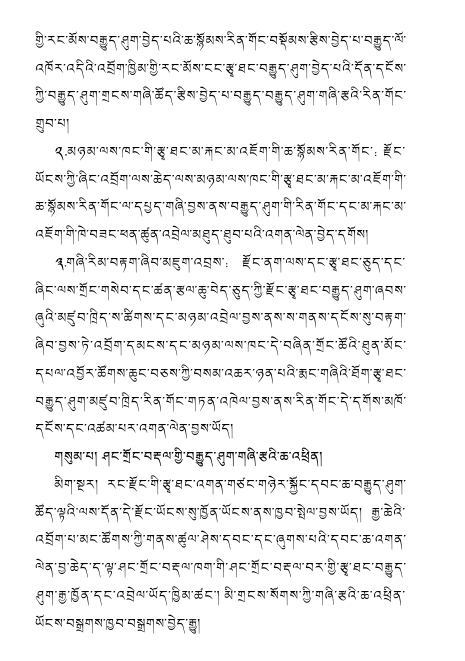 གྱི་རང་མོས་བརྒྱུད་ཤུག་བྱེད་པའི་ཆ་སྙོམས་རིན་གོང་བསྡོམས་རྩིས་བྱེད་པ་བརྒྱུད་ལོ་
འཁོར་འདིའི་འབྲོག་ཁྱིམ་གྱི་རང་མོས་ངང་རྩྭ་ཐང་བརྒྱུད་ཤུག་བྱེད་པའི་དོན་དངོས་
ཀྱི་བརྒྱུད་ཤུག་གྲངས་གཞི་ཚོད་རྩིས་བྱེད་པ་བརྒྱུད་བརྒྱུད་ཤུག་གཞི་རྩའི་རིན་གོང་
གྲུབ་པ།
༢.མཉམ་ལས་ཁང་གི་རྩྭ་ཐང་མ་རྐང་མ་འཇོག་གི་ཆ་སྙོམས་རིན་གོང་: རྫོང་
ཡོངས་ཀྱི་ཞིང་འབྲོག་ལས་ཆེད་ལས་མཉམ་ལས་ཁང་གི་རྩྭ་ཐང་མ་རྐང་མ་འཇོག་གི་
ཆ་སྙོམས་རིན་གོང་ལ་དཔྱད་གཞི་བྱས་ནས་བརྒྱུད་ཤུག་གི་རིན་གོང་དང་མ་རྐང་མ་
འཇོག་གི་ཁེ་བཟང་ཕན་ཚུན་འབྲེལ་མཐུད་ཐུབ་པའི་འགན་ལེན་བྱེད་དགོས།
༣.གཞི་རིམ་བརྟག་ཞིབ་མཇུག་འབྲས་: རྫོང་ནག་ལས་དང་རྩྭ་ཐང་ཅུད་དང་
ཞིང་ལས་གྲོང་གསེབ་དང་ཚན་རྩལ་ཆུ་བེད་ཅུད་ཀྱི་རྫོང་རྩྭ་ཐང་བརྒྱུད་ཤུག་ཞབས་
ཞུའི་མཛུབ་ཁྲིད་ས་ཚིགས་དང་མཉམ་འབྲེལ་བྱས་ནས་ས་གནས་དངོས་སུ་བརྟག་
ཞིབ་བྱས་ཏེ་འབྲོག་དམངས་དང་མཉམ་ལས་ཁང་དེ་བཞིན་གྲོང་ཚོའི་ཐུན་མོང་
དཔལ་འབྱོར་ཚོགས་ཆུང་བཅས་ཀྱི་བསམ་འཆར་ཉན་པའི་རྨང་གཞིའི་ཐོག་རྩྭ་ཐང་
བརྒྱུད་ཤུག་མཛུབ་ཁྲིད་རིན་གོང་གཏན་འཁེལ་བྱས་ནས་རིན་གོང་དེ་དགོས་མཁོ་
དངོས་དང་འཚམ་པར་འགན་ལེན་བྱས་ཡོད།
གསུམ་པ། ཤང་གྲོང་བརྡལ་གྱི་བརྒྱུད་ཤུག་གཞི་རྩའི་ཆ་འཕྲིན།
མིག་སྔར། རང་རྫོང་གི་རྩྭ་ཐང་འགན་གཙང་གཉེར་སྐྱོང་དབང་ཆ་བརྒྱུད་ཤུག་
ཚོད་ལྟའི་ལས་དོན་དེ་རྫོང་ཡོངས་སུ་ཁྱོན་ཡོངས་ནས་ཁྱབ་སྤེལ་བྱས་ཡོད། རྒྱ་ཆེའི་
འབྲོག་པ་མང་ཚོགས་ཀྱི་གནས་ཚུལ་ཤེས་དབང་དང་ཞུགས་པའི་དབང་ཆ་འགན་
ལེན་བྱ་ཆེད་ད་ལྟ་ཤང་གྲོང་བརྡལ་ཁག་གི་ཤང་གྲོང་བརྡལ་བར་གྱི་རྩྭ་ཐང་བརྒྱུད་
ཤུག་རྒྱ་ཁྱོན་དང་འབྲེལ་ཡོད་ཁྱིམ་ཚང་། མི་གྲངས་སོགས་ཀྱི་གཞི་རྩའི་ཆ་འཕྲིན་
ཡོངས་བསྒྲགས་ཁྱབ་བསྒྲགས་བྱེད་རྒྱུ།